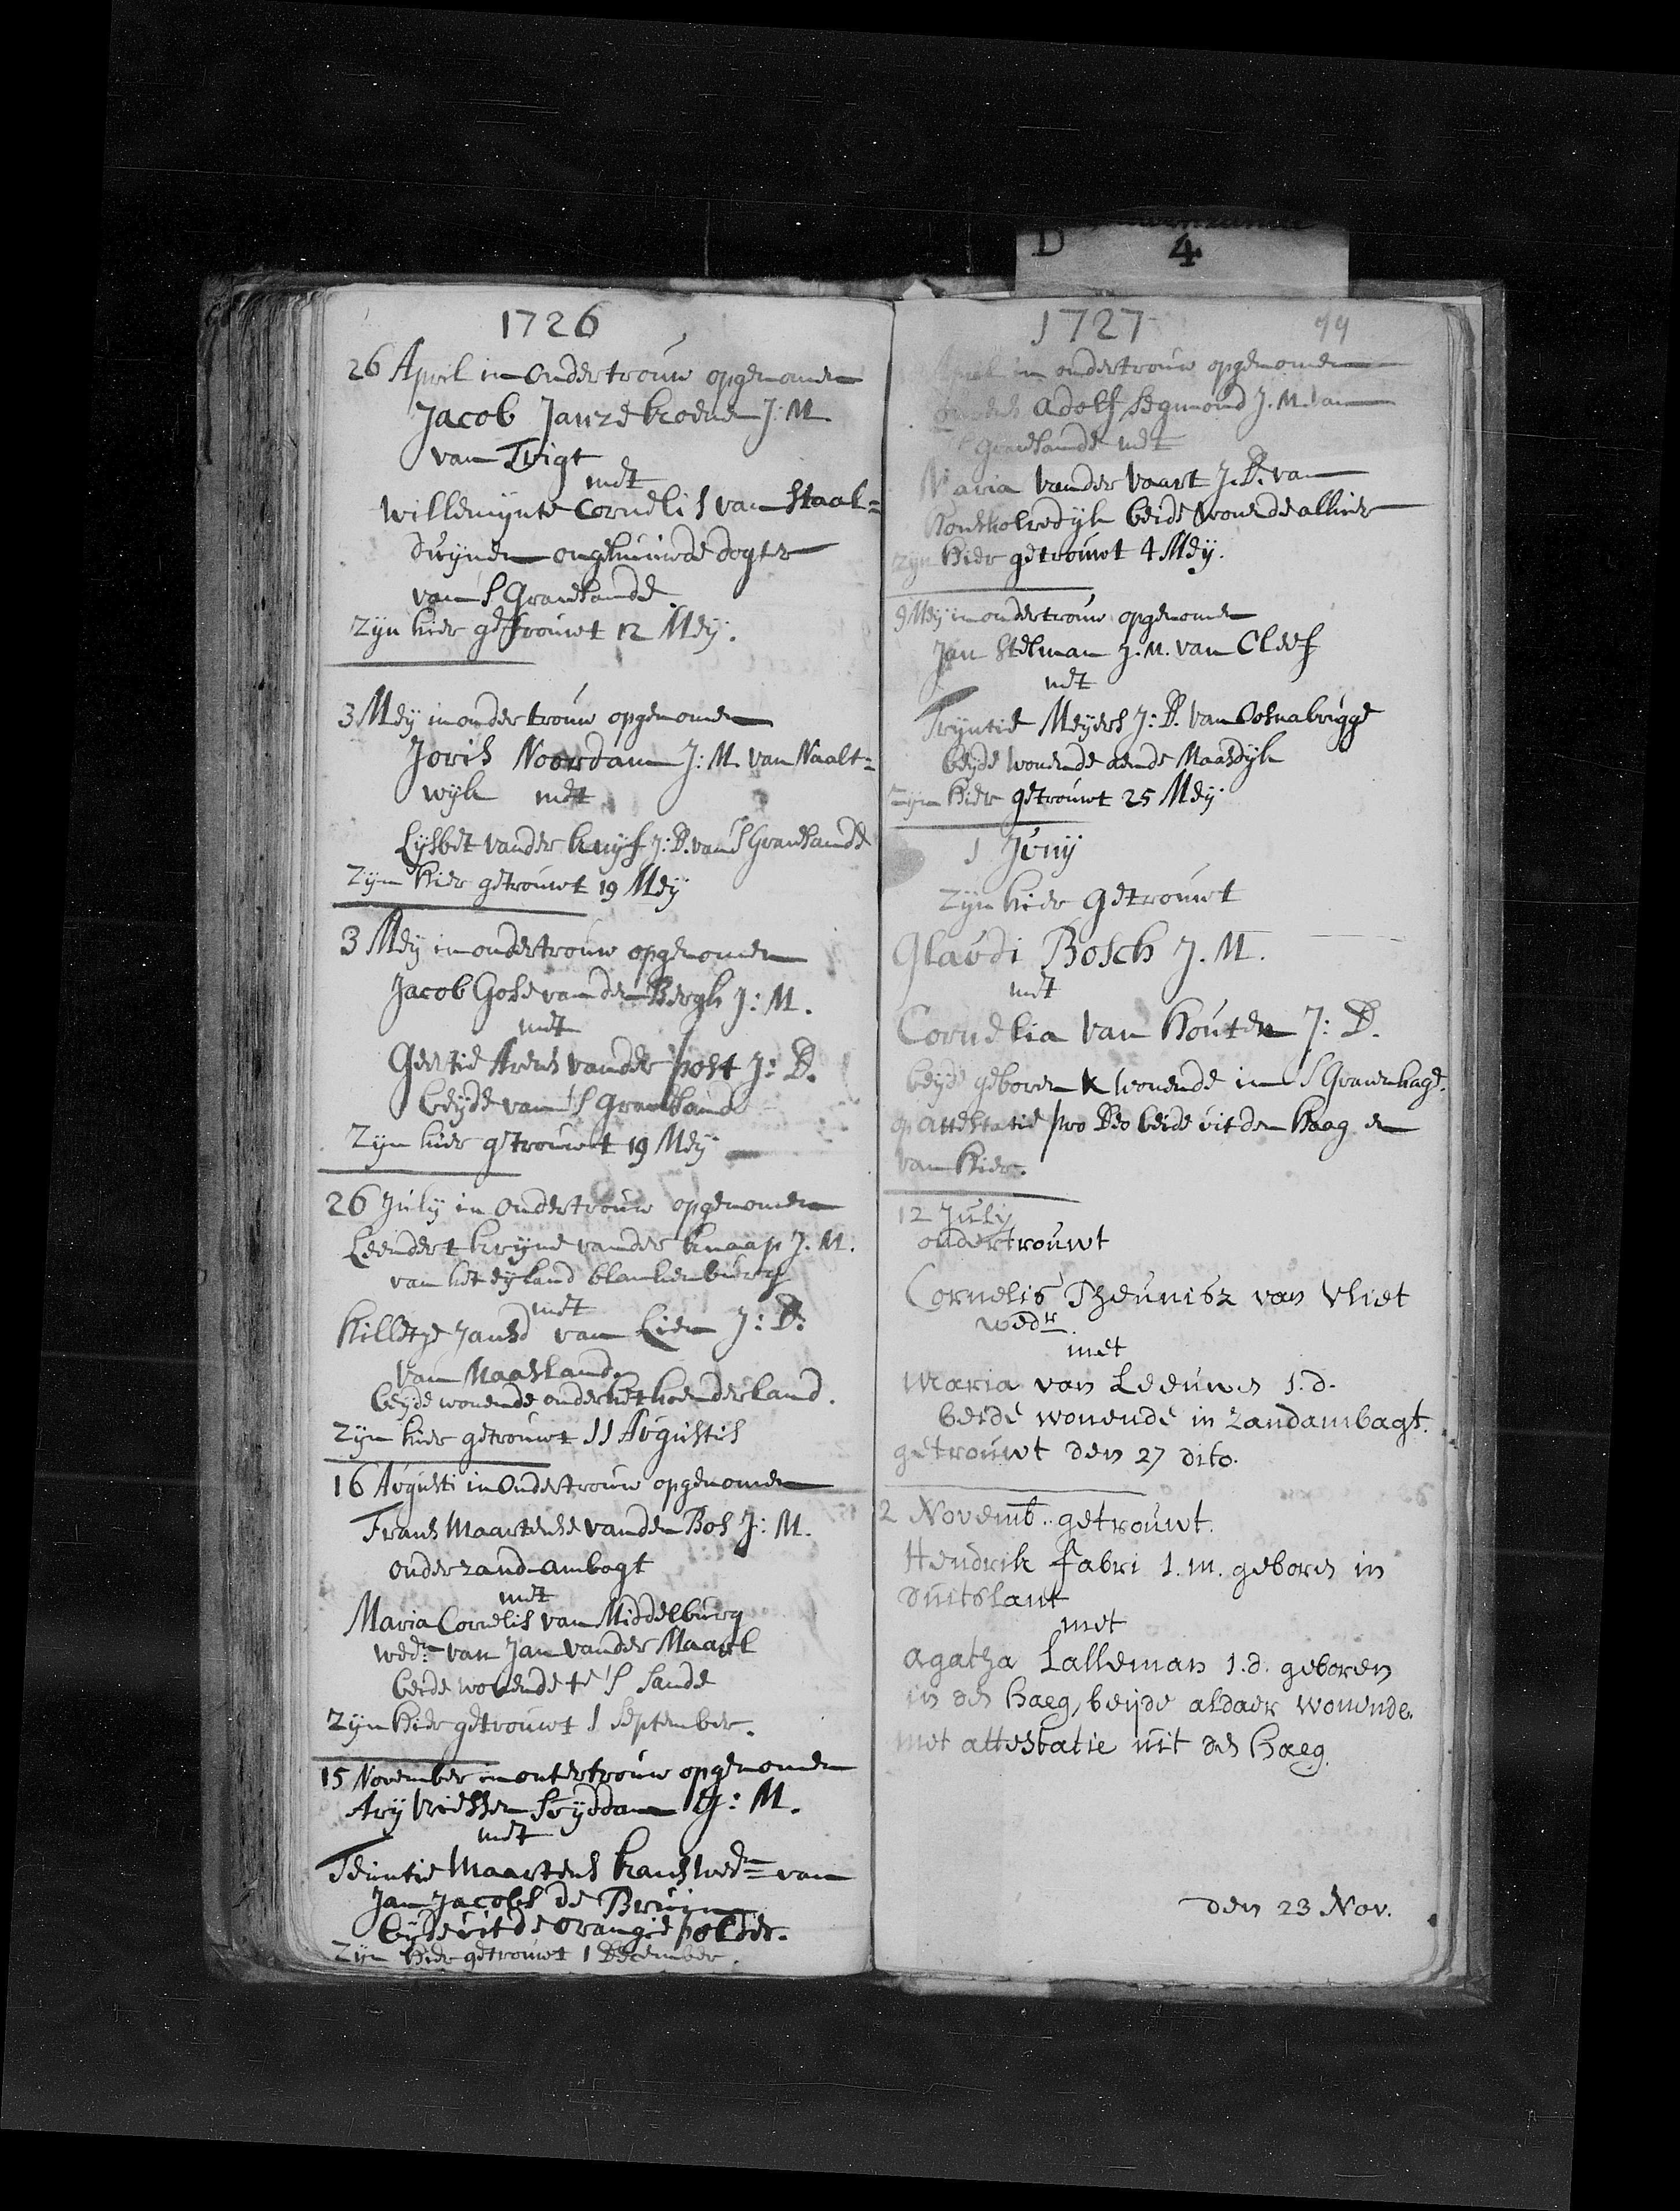 4
1726
26 April in ondertrouw opgenomen
Jacob Janze kroene J: M
van Trigt
met
Willemynte Cornelis van Staal=
duynen ongehuiwde dogter
van S Gravesande
Zyn hier getrouwt 12 Mey.
3 Mey in ondertrouw opgenomen
Joris Noordam J: M. van Naalt=
wyk met
Lysbet vander kuyf J: D. van S Gravesande
Zyn hier getrouwt 19 Mey
3 Mey in ondertrouw opgenomen
Jacob Gose van den Bergh J: M.
met
Geertie Arens vander post J: D.
beyde van S Gravesande
Zyn hier getrouwt 19 Mey
26 July in ondertrouw opgenomen
Leendert kryne vander knaap J. M.
van het eyland blankenburg
met
Hilletje Jansd van Lier J: D:
van Maasland.
beyde wonende onder het hoenderland.
Zyn hier getrouwt 11 Augustis
16 Augusti in Ondertrouw opgenomen
Frans Maartense vanden Bos J: M.
onder zand-ambagt
met
Maria Cornelis van Middelburg
wedr. van Jan vander Maarl
beide wonende te S Sande
Zyn hier getrouwt 1 September.
15 November in ontertrouw opgenomen
Ary Suydam J: M.
met
Teuntie Maartens wedr van
Jan Jacobs de Bruin
byde uit de orangie polder.
Zyn hier getrouwt 1 December.
1727
April in ondertrouw opgenomen
Adolf Segmond J. M. van
S Gravesande met
Maria vander vaart J. D. van
Honsholredyk beide wonende alhier
zyn hier getrouwt 4 Mey.
9 Mey in ondertrouw opgenomen
Jan Stelman J. M. van Cleef
met
Tryntie Meyers J: D. van Osnabrugge
beyde wonende aende Maasdyk
zyn hier getrouwt 25 Mey
1 Juny
zyn hier getrouwt
Glaudi Bosch J. M.
met
Cornelia van Houten J: D.
beyde geboren & wonende in S Gravenhage.
op attestatie pro Deo beide uit den haag en
van hier.
12 July
ondertrouwt
Cornelis Theunisz van Vliet
wedr
met
Maria van Leeuwen J. d.
beide wonende in Zandambagt.
getrouwt den 27 dito.
2 Novemb. getrouwt.
Hendrik fabri J. m. geboren in
duitslant
met
Agatha Lalleman J. d. geboren
in den haeg, beijde aldaer wonende.
met attestatie uit den haeg.
den 23 Nov.